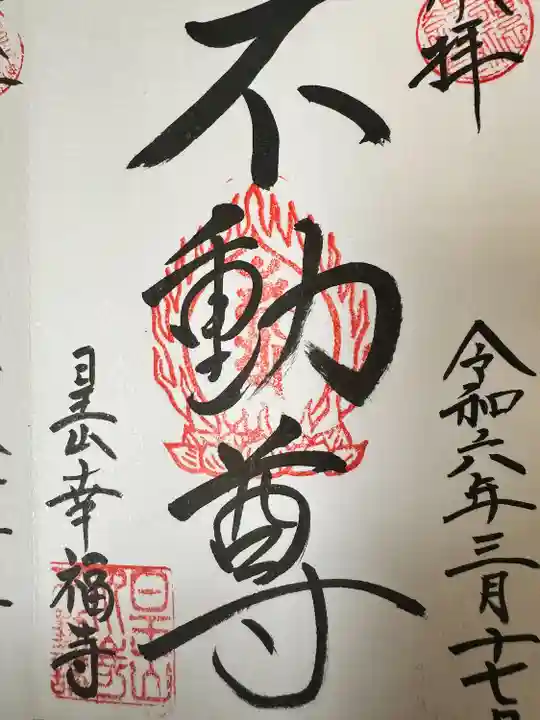 拝
令和六年三月十七日
不動尊
幸福寺